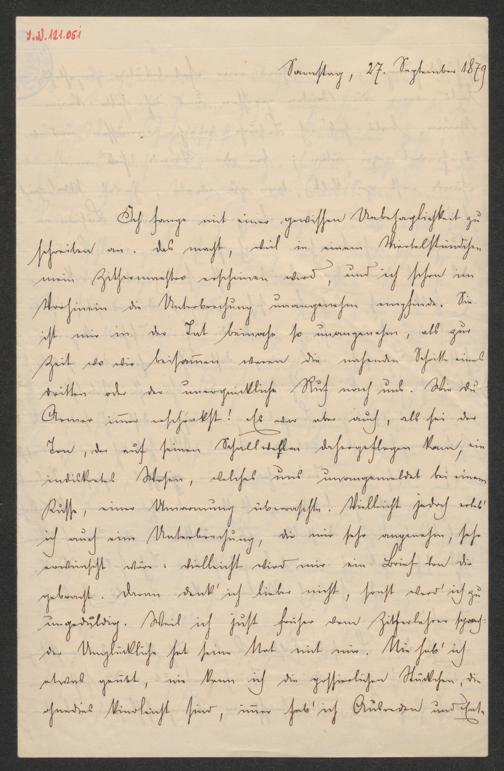 I.N. 121.051
Samstag, 27. September 1879
Ich fange mit einer gewissen Unbehaglichkeit zu
schreiben an. Das macht, weil in einem Viertelstündchen
mein Zithermaestro erscheinen wird, und ich schon im
Vorhinein die Unterbrechung unangenehm empfinde. Sie
ist mir in der Tat beinahe so unangenehm, als zur
Zeit wo wir beisammen waren die nahenden Schritte eines
dritten oder der unerquickliche Ruf nach uns. Wie Du
Armer immer erschrakst! Es war aber auch, als sei der
Ton, der auf seinen Schallwellen dahergeflogen kam, ein
indiskretes Wesen, welches uns unangemeldet bei einem
Kusse, einer Umarmung überraschte. Vielleicht jedoch erleb'
ich auch eine Unterbrechung, die mir sehr angenehm, sehr
erwünscht wäre: vielleicht wird mir ein Brief von Dir
gebracht. Daran denk' ich lieber nicht, sonst werd' ich zu
ungeduldig. Weil ich just früher vom Zitherlehrer sprach:
der Unglückliche hat seine Not mit mir. Nie hab' ich
etwas geübt, nie kann ich die possierlichen Stückchen, die
ohnedies kindleicht sind, immer hab' ich Ausreden und